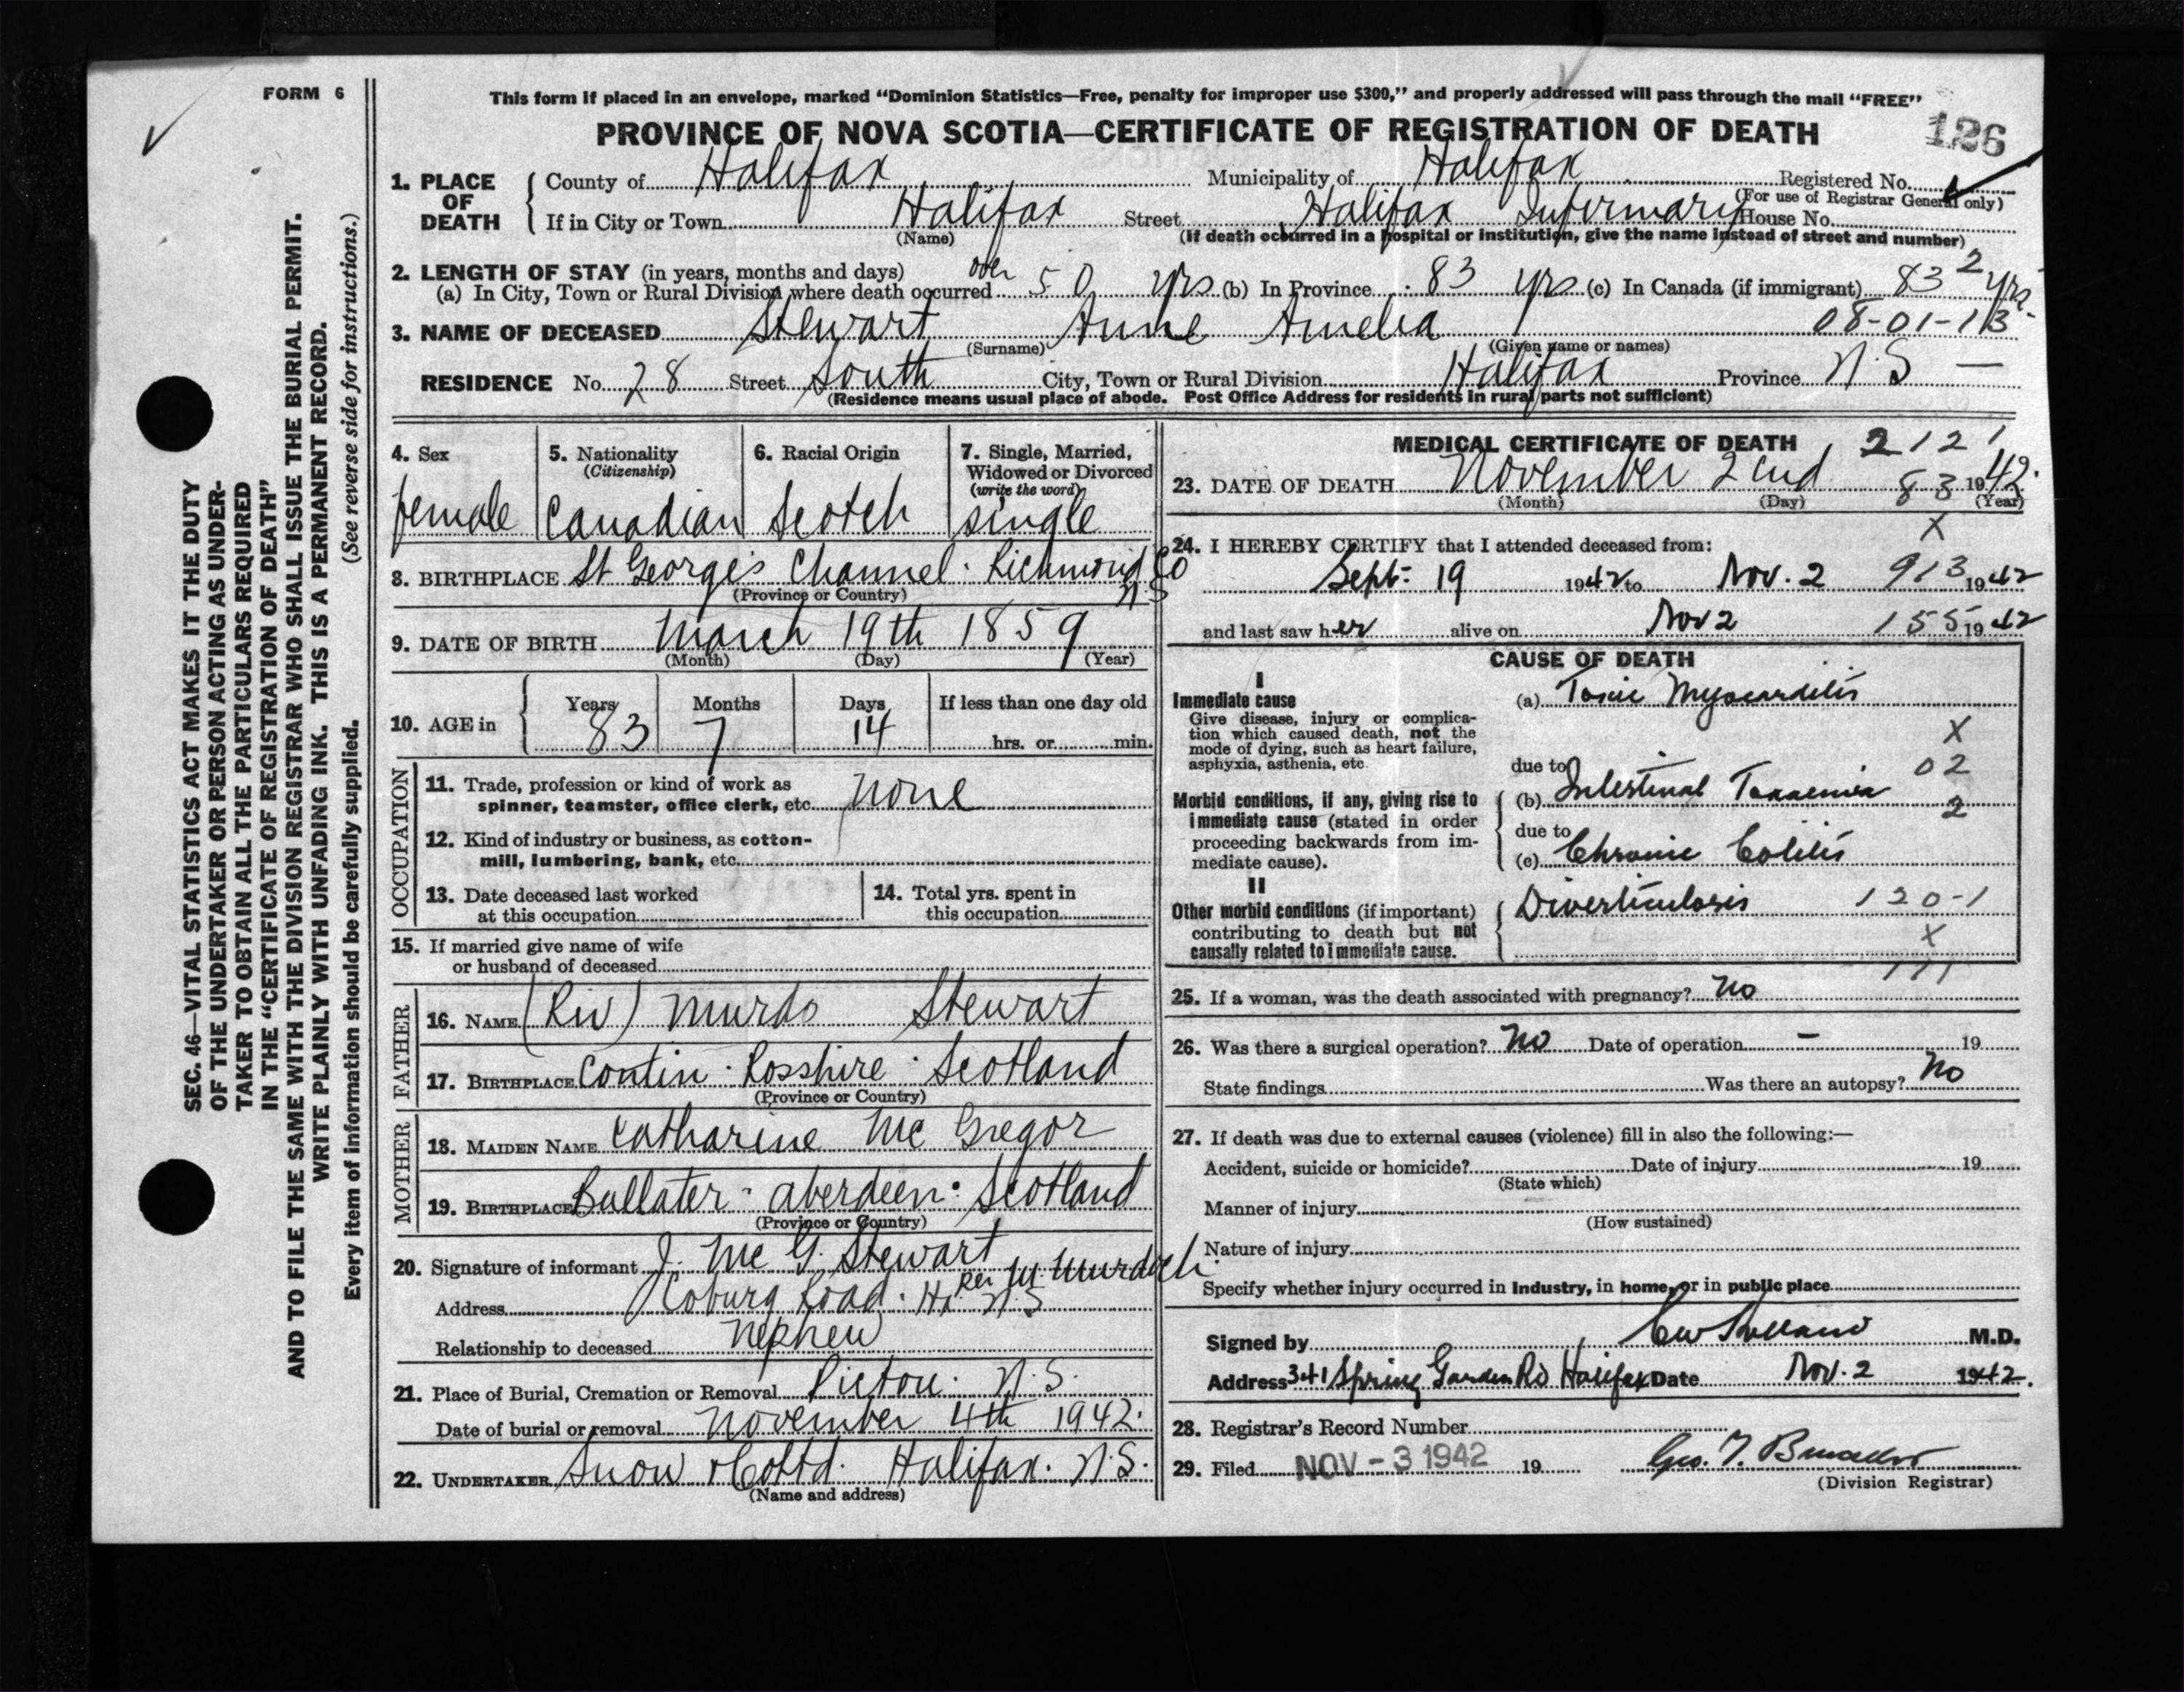 FORM 6
This form if placed in an envelope, marked “Dominion Statistics—Free, penalty for improper use $300,” and properly addressed will pass through the mail “FREE”
PROVINCE OF NOVA SCOTIA—CERTIFICATE OF REGISTRATION OF DEATH
126
1. PLACE OF DEATH
County of Halifax Municipality of Halifax Registered No.
(For use of Registrar General only)
If in City or Town Halifax Street Halifax Infirmary House No.
(Name) (If death occurred in a hospital or institution, give the name instead of street and number)
2. LENGTH OF STAY (in years, months and days)
(a) In City, Town or Rural Division where death occurred over 50 yrs (b) In Province 83 yrs (c) In Canada (if immigrant) 83 yrs. 2
3. NAME OF DECEASED Stewart Anne Amelia 08-01-13
(Surname) (Given name or names)
RESIDENCE No. 28 Street South City, Town or Rural Division Halifax Province N.S —
(Residence means usual place of abode. Post Office Address for residents in rural parts not sufficient)
4. Sex
female
5. Nationality
(Citizenship)
Canadian
6. Racial Origin
Scotch
7. Single, Married, Widowed or Divorced
(write the word)
single
8. BIRTHPLACE St George's Channel. Richmond Co N.S
(Province or Country)
9. DATE OF BIRTH March 19th 1859
(Month) (Day) (Year)
10. AGE in
Years 83
Months 7
Days 14
If less than one day old
hrs. or min.
OCCUPATION
11. Trade, profession or kind of work as
spinner, teamster, office clerk, etc. none
12. Kind of industry or business, as cotton-
mill, lumbering, bank, etc.
13. Date deceased last worked
at this occupation
14. Total yrs. spent in
this occupation
15. If married give name of wife
or husband of deceased
FATHER
16. NAME (Rev) Murdo Stewart
17. BIRTHPLACE Contin. Rosshire. Scotland
(Province or Country)
MOTHER
18. MAIDEN NAME Katharine Mc Gregor
19. BIRTHPLACE Ballater - Aberdeen. Scotland
(Province or Country)
20. Signature of informant J. Mc G. Stewart
Per M. Murdoch
Address Coburg Road. Hx N.S
Relationship to deceased Nephew
21. Place of Burial, Cremation or Removal Pictou. N.S.
Date of burial or removal November 4th 1942.
22. UNDERTAKER Snow & Co Ltd. Halifax. N.S.
(Name and address)
MEDICAL CERTIFICATE OF DEATH 2121
23. DATE OF DEATH November 2cnd 83 1942.
(Month) (Day) (Year)
X
24. I HEREBY CERTIFY that I attended deceased from:
Sept. 19 1942 to Nov. 2 913 1942
and last saw her alive on Nov 2 155 1942
CAUSE OF DEATH
I
Immediate cause
Give disease, injury or complica-
tion which caused death, not the
mode of dying, such as heart failure,
asphyxia, asthenia, etc.
(a) Toxic Myocarditis
X
due to 02
Morbid conditions, if any, giving rise to
immediate cause (stated in order
proceeding backwards from im-
mediate cause).
(b) Intestinal Toxaemia 2
due to
(c) Chronic Colitis
II
Other morbid conditions (if important)
contributing to death but not
causally related to immediate cause.
Diverticulosis 120-1
X
111
25. If a woman, was the death associated with pregnancy? No
26. Was there a surgical operation? No Date of operation — 19
State findings Was there an autopsy? No
27. If death was due to external causes (violence) fill in also the following:—
Accident, suicide or homicide? Date of injury 19
(State which)
Manner of injury
(How sustained)
Nature of injury
Specify whether injury occurred in industry, in home, or in public place
Signed by M.D.
Address 341 Spring Garden Rd Halifax Date Nov. 2 1942.
28. Registrar's Record Number
29. Filed NOV - 3 1942 19
(Division Registrar)
SEC. 46—VITAL STATISTICS ACT MAKES IT THE DUTY
OF THE UNDERTAKER OR PERSON ACTING AS UNDER-
TAKER TO OBTAIN ALL THE PARTICULARS REQUIRED
IN THE “CERTIFICATE OF REGISTRATION OF DEATH”
AND TO FILE THE SAME WITH THE DIVISION REGISTRAR WHO SHALL ISSUE THE BURIAL PERMIT.
WRITE PLAINLY WITH UNFADING INK. THIS IS A PERMANENT RECORD.
Every item of information should be carefully supplied. (See reverse side for instructions.)